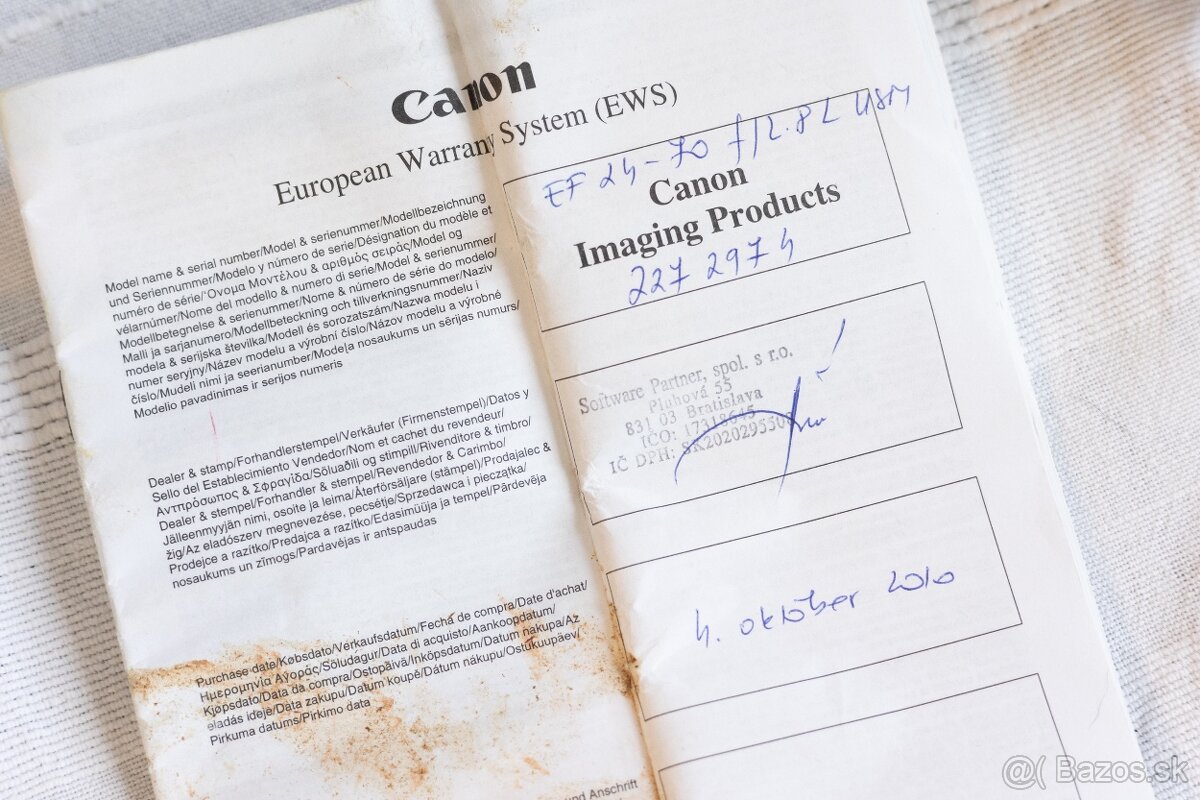 Canon
European Warrany System (EWS)
Model name & serial number/Model & serienummer/Modellbezeichnung
und Seriennummer/Modelo y número de serie/Désignation du modèle et
numéro de série/Όνομα Μοντέλου & αριθμός σειράς/Model og
vélarnúmer/Nome del modello & numero di serie/Model & serienummer/
Modellbetegnelse & serienummer/Nome & número de série do modelo/
Malli ja sarjanumero/Modellbeteckning och tillverkningsnummer/Naziv
modela & serijska številka/Modell és sorozatszám/Nazwa modelu i
numer seryjny/Název modelu a výrobní číslo/Názov modelu a výrobné
číslo/Mudeli nimi ja seerianumber/Modeļa nosaukums un sērijas numurs/
Modelio pavadinimas ir serijos numeris
EF 24-70 f/2.8 L USM
Canon
Imaging Products
227 297 4
Dealer & stamp/Forhandlerstempel/Verkäufer (Firmenstempel)/Datos y
Sello del Establecimiento Vendedor/Nom et cachet du revendeur/
Αντιπρόσωπος & Σφραγίδα/Söluaðili og stimpill/Rivenditore & timbro/
Dealer & stempel/Forhandler & stempel/Revendedor & Carimbo/
Jälleenmyyjän nimi, osoite ja leima/Återförsäljare (stämpel)/Prodajalec &
žig/Az eladószerv megnevezése, pecsétje/Sprzedawca i pieczątka/
Prodejce a razítko/Predajca a razítko/Edasimüüja ja tempel/Pārdevēja
nosaukums un zīmogs/Pardavėjas ir antspaudas
Software Partner, spol. s r.o.
Pluhová 55
831 03 Bratislava
IČO: 17318645
IČ DPH: SK2020295508
Purchase date/Købsdato/Verkaufsdatum/Fecha de compra/Date d'achat/
Ημερομηνία Αγοράς/Söludagur/Data di acquisto/Aankoopdatum/
Kjøpsdato/Data da compra/Ostopäivä/Inköpsdatum/Datum nakupa/Az
eladás ideje/Data zakupu/Datum koupě/Dátum nákupu/Ostukuupäev/
Pirkuma datums/Pirkimo data
4. október 2010
und Anschrift
@( Bazos.sk